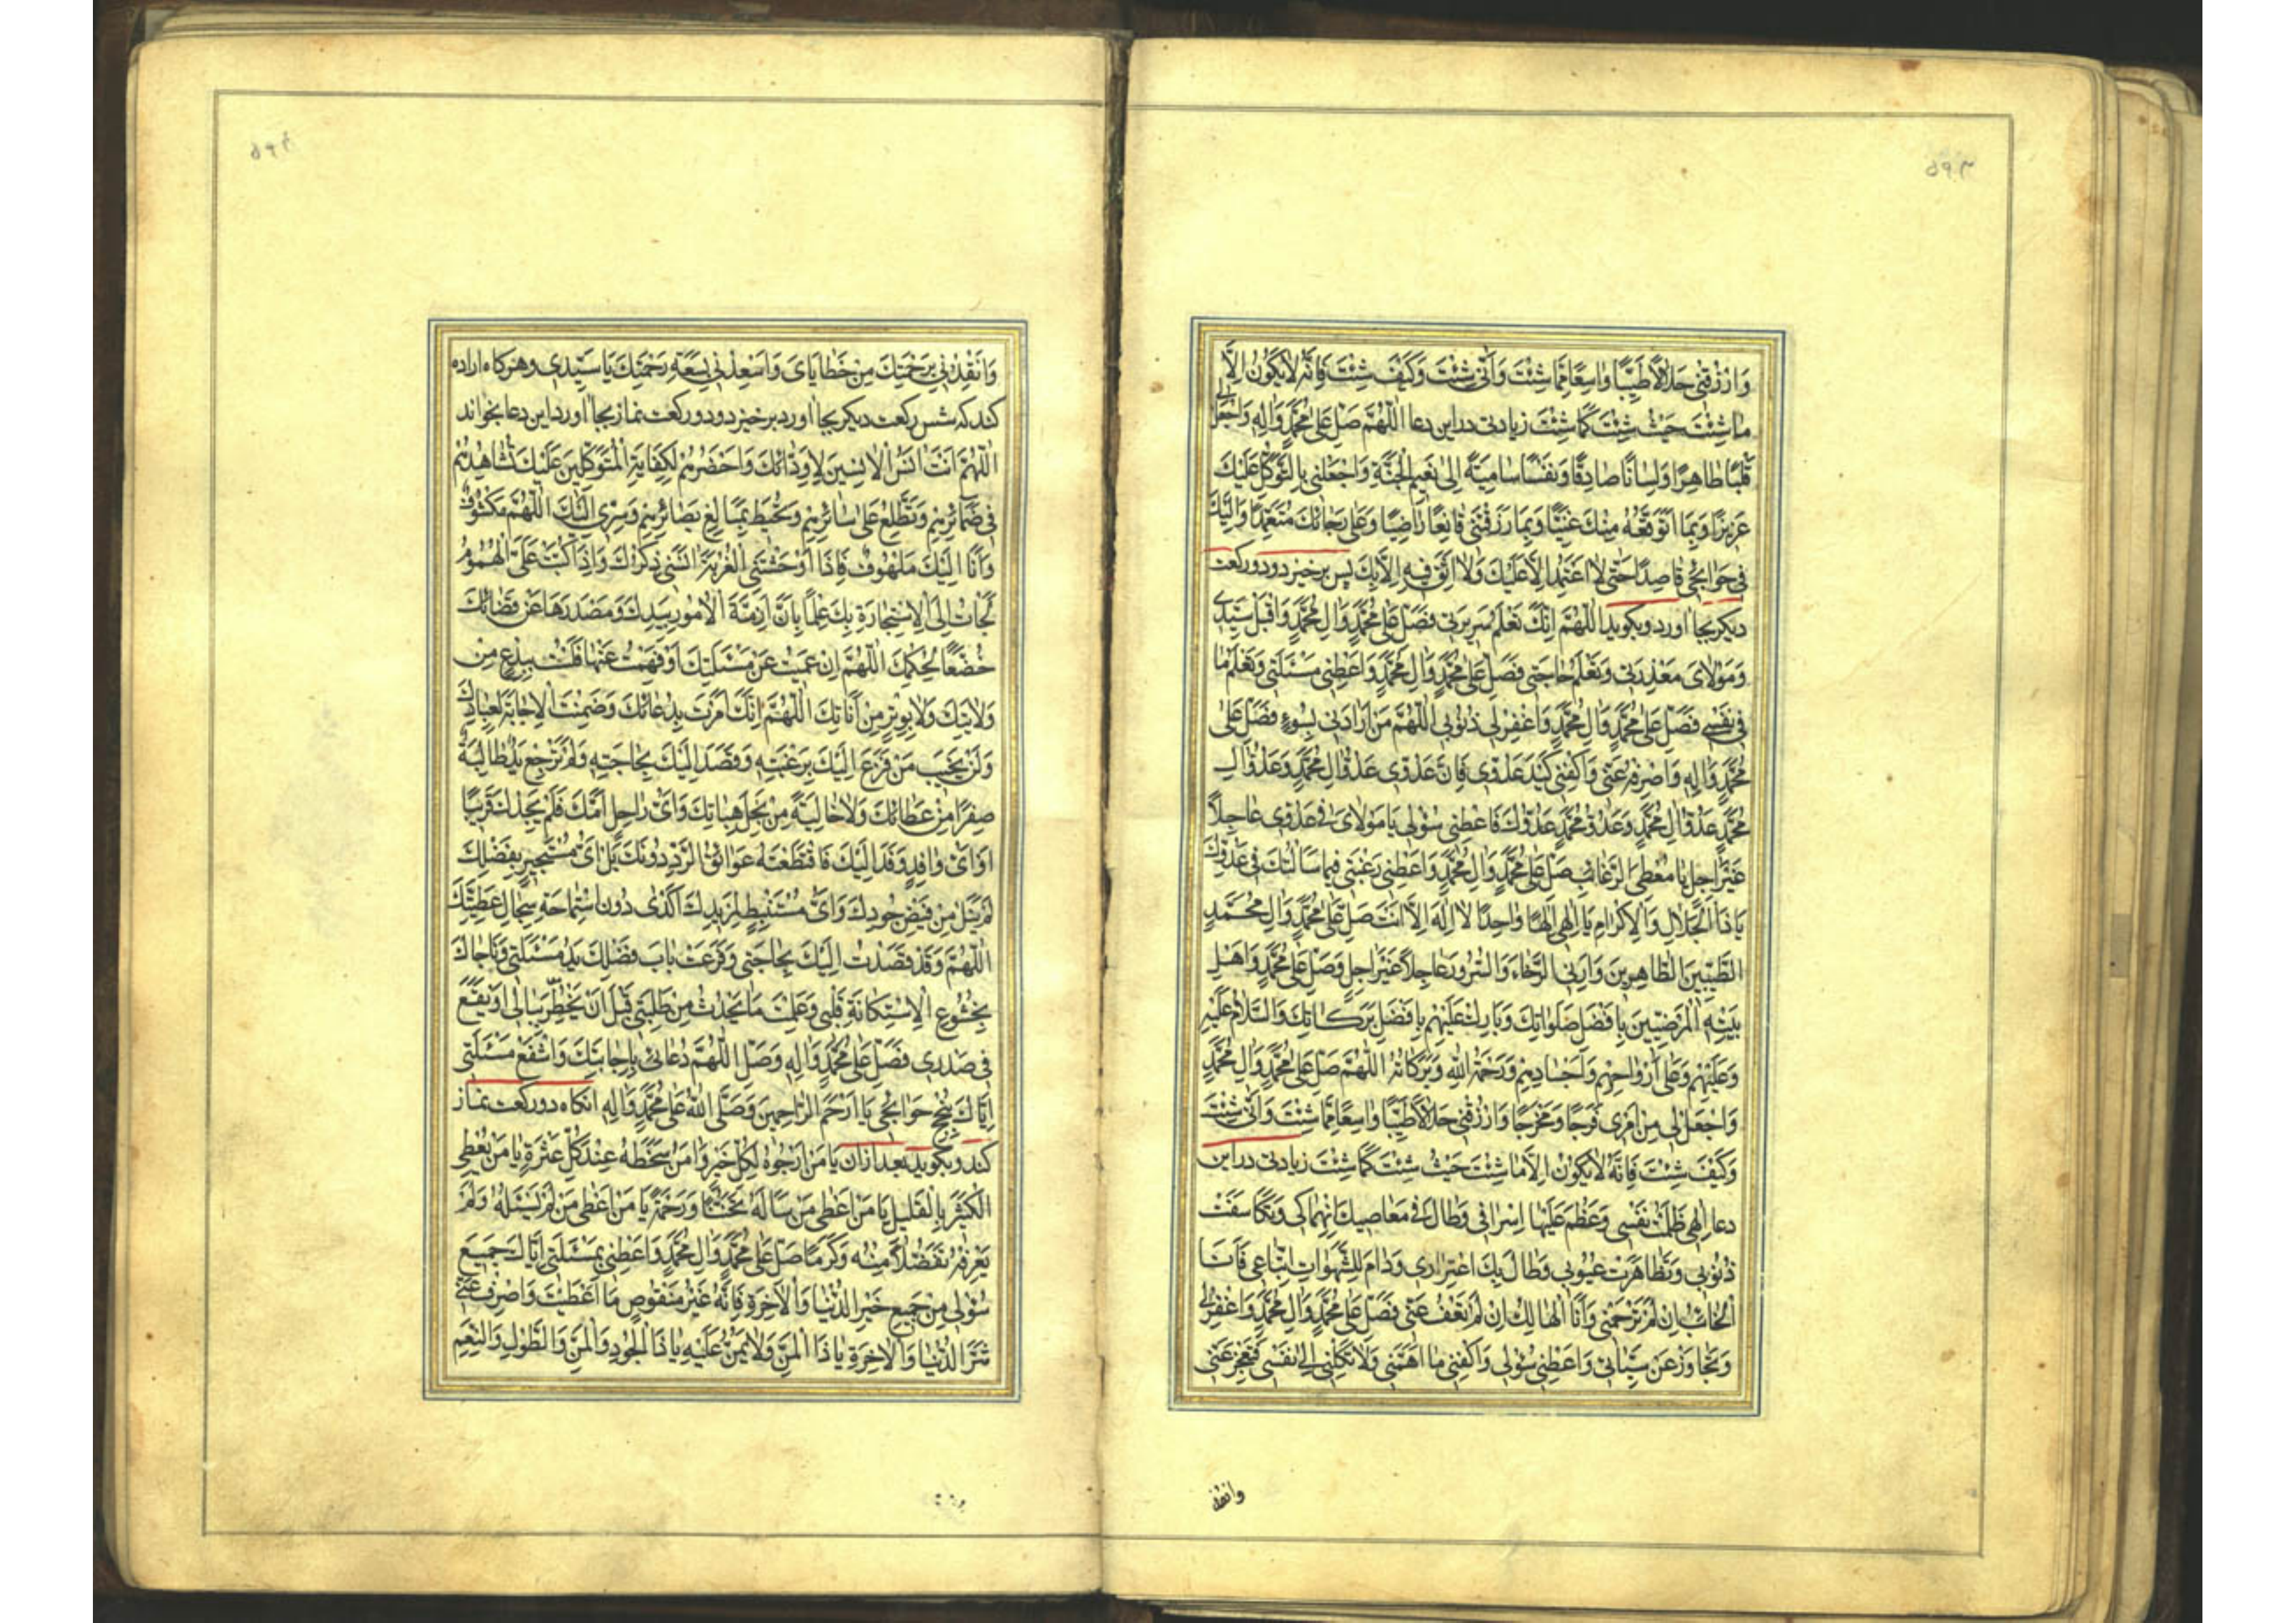 ۵۹۳
وَارْزُقْنِي حَلَالًا طَيِّبًا وَاسِعًا مِمَّا شِئْتَ وَأَنَّى شِئْتَ وَكَيْفَ شِئْتَ فَإِنَّهُ لَا يَكُونُ إِلَّا
مَا شِئْتَ حَيْثُ شِئْتَ كَمَا شِئْتَ زیادتی در این دعا اللّٰهُمَّ صَلِّ عَلَى مُحَمَّدٍ وَآلِهِ وَاجْعَلْ لِي
قَلْبًا طَاهِرًا وَلِسَانًا صَادِقًا وَنَفْسًا سَامِيَةً إِلَى نَعِيمِ الْجَنَّةِ وَاجْعَلْنِي بِالتَّوَكُّلِ عَلَيْكَ
عَزِيزًا وَبِمَا أَتَوَقَّعُهُ مِنْكَ غَنِيًّا وَبِمَا رَزَقْتَنِي قَانِعًا رَاضِيًا وَعَلَى رَجَائِكَ مُعْتَمِدًا وَإِلَيْكَ
فِي حَوَائِجِي قَاصِدًا حَتَّى لَا أَعْتَمِدَ إِلَّا عَلَيْكَ وَلَا أَثِقَ فِيهِ إِلَّا بِكَ پس برخیزد و دو رکعت
دیگر بجا آورد و بگوید اللّٰهُمَّ إِنَّكَ تَعْلَمُ سَرِيرَتِي فَصَلِّ عَلَى مُحَمَّدٍ وَآلِ مُحَمَّدٍ وَاقْبَلْ سَيِّدِي
وَمَوْلَايَ مَعْذِرَتِي وَتَعْلَمُ حَاجَتِي فَصَلِّ عَلَى مُحَمَّدٍ وَآلِ مُحَمَّدٍ وَأَعْطِنِي مَسْئَلَتِي وَتَعْلَمُ مَا
فِي نَفْسِي فَصَلِّ عَلَى مُحَمَّدٍ وَآلِ مُحَمَّدٍ وَاغْفِرْ لِي ذُنُوبِي اللّٰهُمَّ مَنْ أَرَادَنِي بِسُوءٍ فَصَلِّ عَلَى
مُحَمَّدٍ وَآلِهِ وَاصْرِفْهُ عَنِّي وَاكْفِنِي كَيْدَ عَدُوِّي فَإِنَّ عَدُوِّي عَدُوُّ آلِ مُحَمَّدٍ وَعَدُوُّ آلِ
مُحَمَّدٍ عَدُوُّ آلِ مُحَمَّدٍ وَعَدُوُّ مُحَمَّدٍ عَدُوُّكَ فَأَعْطِنِي سُؤْلِي يَا مَوْلَايَ فِي عَدُوِّي عَاجِلًا
غَيْرَ آجِلٍ يَا مُعْطِيَ الرَّغَائِبِ صَلِّ عَلَى مُحَمَّدٍ وَآلِ مُحَمَّدٍ وَأَعْطِنِي رَغْبَتِي فِيمَا سَأَلْتُكَ فِي عَدُوِّكَ
يَا ذَا الْجَلَالِ وَالْإِكْرَامِ يَا إِلٰهِي إِلٰهًا وَاحِدًا لَا إِلٰهَ إِلَّا أَنْتَ صَلِّ عَلَى مُحَمَّدٍ وَآلِ مُحَمَّدٍ
الطَّيِّبِينَ الطَّاهِرِينَ وَأَرِنِي الرَّخَاءَ وَالسُّرُورَ عَاجِلًا غَيْرَ آجِلٍ وَصَلِّ عَلَى مُحَمَّدٍ وَأَهْلِ
بَيْتِهِ الْمَرْضِيِّينَ بِأَفْضَلِ صَلَوَاتِكَ وَبَارِكْ عَلَيْهِمْ بِأَفْضَلِ بَرَكَاتِكَ وَالسَّلَامُ عَلَيْهِ
وَعَلَيْهِمْ وَعَلَى أَرْوَاحِهِمْ وَأَجْسَادِهِمْ وَرَحْمَةُ اللهِ وَبَرَكَاتُهُ اللّٰهُمَّ صَلِّ عَلَى مُحَمَّدٍ وَآلِ مُحَمَّدٍ
وَاجْعَلْ لِي مِنْ أَمْرِي فَرَجًا وَمَخْرَجًا وَارْزُقْنِي حَلَالًا طَيِّبًا وَاسِعًا مِمَّا شِئْتَ وَأَنَّى شِئْتَ
وَكَيْفَ شِئْتَ فَإِنَّهُ لَا يَكُونُ إِلَّا مَا شِئْتَ حَيْثُ شِئْتَ كَمَا شِئْتَ زیادتی در این
دعا إِلٰهِي ظَلَمْتُ نَفْسِي وَعَظُمَ عَلَيْهَا إِسْرَافِي وَطَالَ فِي مَعَاصِيكَ انْهِمَاكِي وَتَكَاثَفَتْ
ذُنُوبِي وَتَظَاهَرَتْ عُيُوبِي وَطَالَ بِكَ اغْتِرَارِي وَدَامَ لِلشَّهَوَاتِ اتِّبَاعِي فَأَنَا
الْخَائِبُ إِنْ لَمْ تَرْحَمْنِي وَأَنَا الْهَالِكُ إِنْ لَمْ تَعْفُ عَنِّي فَصَلِّ عَلَى مُحَمَّدٍ وَآلِ مُحَمَّدٍ وَاغْفِرْ لِي
وَتَجَاوَزْ عَنْ سَيِّئَاتِي وَأَعْطِنِي سُؤْلِي وَاكْفِنِي مَا أَهَمَّنِي وَلَا تَكِلْنِي إِلَى نَفْسِي فَتَعْجِزَ عَنِّي
وانقذ
۵۹۴
وَأَنْقِذْنِي بِرَحْمَتِكَ مِنْ خَطَايَايَ وَأَسْعِدْنِي بِسَعَةِ رَحْمَتِكَ يَا سَيِّدِي وهرگاه اراده
کند که شش رکعت دیگر بجا آورد برخیزد و دو رکعت نماز بجا آورد این دعا بخواند
اللّٰهُمَّ أَنْتَ آنَسُ الْآنِسِينَ لِأَوِدَّائِكَ وَأَحْضَرُهُمْ لِكِفَايَةِ الْمُتَوَكِّلِينَ عَلَيْكَ تُشَاهِدُهُمْ
فِي ضَمَائِرِهِمْ وَتَطَّلِعُ عَلَى سَرَائِرِهِمْ وَتُحِيطُ بِمَبَالِغِ بَصَائِرِهِمْ وَسِرِّي إِلَيْكَ اللّٰهُمَّ مَكْشُوفٌ
وَأَنَا إِلَيْكَ مَلْهُوفٌ فَإِذَا أَوْحَشَتْنِي الْغُرْبَةُ آنَسَنِي ذِكْرُكَ وَإِذَا كَبَّتْ عَلَيَّ الْهُمُومُ
لَجَأْتُ إِلَى الْإِسْتِجَارَةِ بِكَ عِلْمًا بِأَنَّ أَزِمَّةَ الْأُمُورِ بِيَدِكَ وَمَصْدَرَهَا عَنْ قَضَائِكَ
خُضَّعًا لِحُكْمِكَ اللّٰهُمَّ إِنْ عَمِيتُ عَنْ مَسْئَلَتِكَ أَوْ فَهِهْتُ عَنْهَا فَلَسْتُ بِبِدْعٍ مِنْ
وَلَايَتِكَ وَلَا بِوِتْرٍ مِنْ أَنَاتِكَ اللّٰهُمَّ إِنَّكَ أَمَرْتَ بِدُعَائِكَ وَضَمِنْتَ الْإِجَابَةَ لِعِبَادِكَ
وَلَنْ يَخِيبَ مَنْ فَزِعَ إِلَيْكَ بِرَغْبَتِهِ وَقَصَدَ إِلَيْكَ بِحَاجَتِهِ وَلَمْ تَرْجِعْ يَدٌ طَالِبَةٌ
صِفْرًا مِنْ عَطَائِكَ وَلَا خَالِيَةً مِنْ نِحَلِ هِبَاتِكَ وَأَيُّ رَاحِلٍ أَمَّكَ فَلَمْ يَجِدْكَ قَرِيبًا
أَوْ أَيُّ وَافِدٍ وَفَدَ إِلَيْكَ فَاقْتَطَعَتْهُ عَوَائِقُ الرَّدِّ دُونَكَ بَلْ أَيُّ مُسْتَجِيرٍ بِفَضْلِكَ
لَمْ يَنَلْ مِنْ فَيْضِ جُودِكَ وَأَيُّ مُسْتَنْبِطٍ لِمَزِيدِكَ أَكْدَى دُونَ اسْتِمَاحَةِ سِجَالِ عَطِيَّتِكَ
اللّٰهُمَّ وَقَدْ قَصَدْتُ إِلَيْكَ بِحَاجَتِي وَقَرَعَتْ بَابَ فَضْلِكَ يَدُ مَسْئَلَتِي وَنَاجَاكَ
بِخُشُوعِ الْإِسْتِكَانَةِ قَلْبِي وَعَلِمْتَ مَا يَحْدُثُ مِنْ طَلِبَتِي قَبْلَ أَنْ يَخْطُرَ بِبَالِي أَوْ يَقَعَ
فِي صَدْرِي فَصَلِّ عَلَى مُحَمَّدٍ وَآلِهِ وَصِلِ اللّٰهُمَّ دُعَائِي بِإِجَابَتِكَ وَاشْفَعْ مَسْئَلَتِي
إِيَّاكَ بِنُجْحِ حَوَائِجِي يَا أَرْحَمَ الرَّاحِمِينَ وَصَلَّى اللهُ عَلَى مُحَمَّدٍ وَآلِهِ آنگاه دو رکعت نماز
کند و بگوید بعد از آن يَا مَنْ أَرْجُوهُ لِكُلِّ خَيْرٍ وَآمَنُ سَخَطَهُ عِنْدَ كُلِّ عَثْرَةٍ يَا مَنْ يُعْطِي
الْكَثِيرَ بِالْقَلِيلِ يَا مَنْ أَعْطَى مَنْ سَأَلَهُ تَحَنُّنًا وَرَحْمَةً يَا مَنْ أَعْطَى مَنْ لَمْ يَسْئَلْهُ وَلَمْ
يَعْرِفْهُ تَفَضُّلًا مِنْهُ وَكَرَمًا صَلِّ عَلَى مُحَمَّدٍ وَآلِ مُحَمَّدٍ وَأَعْطِنِي بِمَسْئَلَتِي إِيَّاكَ جَمِيعَ
سُؤْلِي مِنْ جَمِيعِ خَيْرِ الدُّنْيَا وَالْآخِرَةِ فَإِنَّهُ غَيْرُ مَنْقُوصٍ مَا أَعْطَيْتَ وَاصْرِفْ عَنِّي
شَرَّ الدُّنْيَا وَالْآخِرَةِ يَا ذَا الْمَنِّ وَلَا يُمَنُّ عَلَيْهِ يَا ذَا الْجُودِ وَالْمَنِّ وَالطَّوْلِ وَالنِّعَمِ